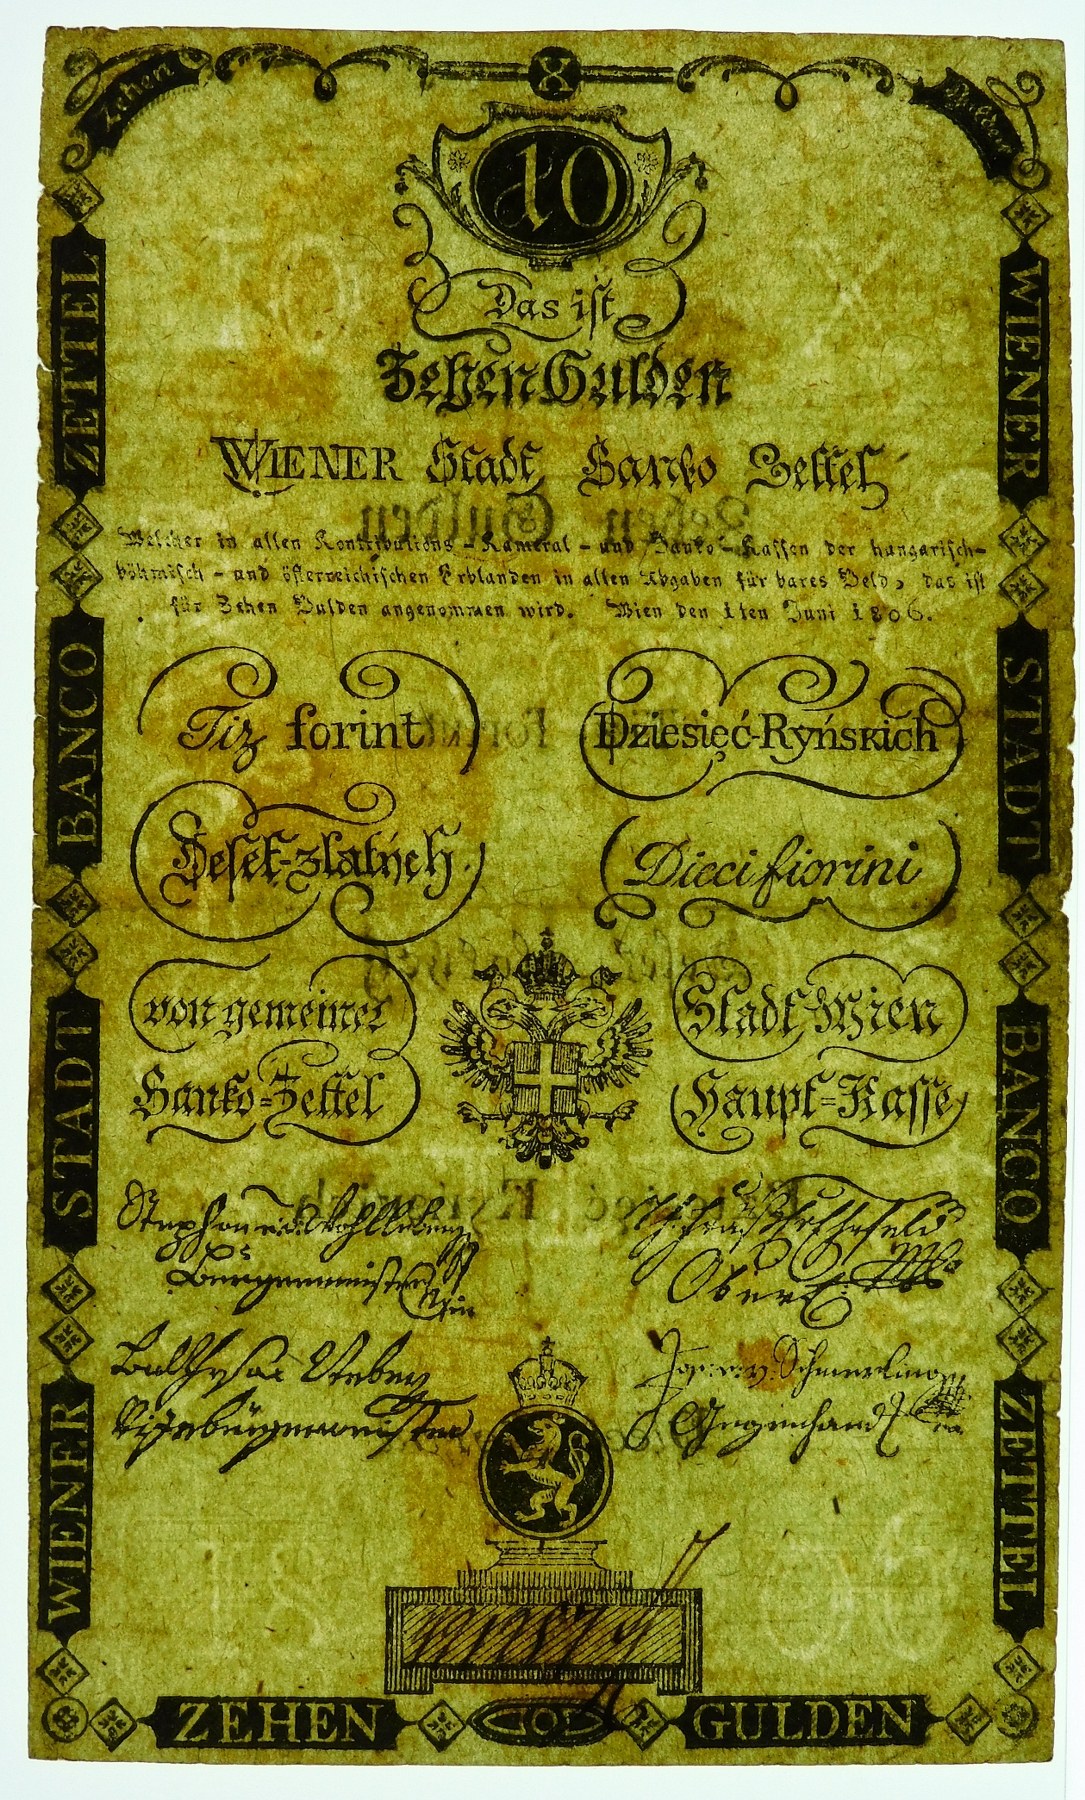 Zehen
X
Gulden
10
Das ist
Zehen Gulden
WIENER Stadt Banko Zettel
Welcher in allen Kontributions-Kameral-und Banko-Kassen der hungarisch-
böhmisch-und österreichischen Erblanden in allen Abgaben für bares Geld, das ist
für Zehen Gulden angenommen wird. Wien den 1ten Juni 1806.
Tiz forint
Dziesięć-Ryńskich
Deset-zlatých
Dieci fiorini
von gemeiner
Stadt Wien
Banko=Zettel
Haupt=Kasse
Stephan
Burgermeister
Ober
Vizeburgermeister
ZETTEL
BANCO
STADT
WIENER
WIENER
STADT
BANCO
ZETTEL
ZEHEN
10
GULDEN